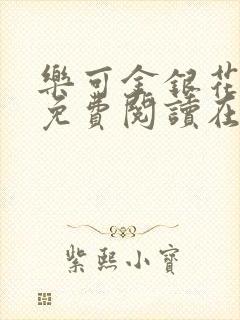 樂可金銀花
免費閱讀在
紫熙小寶